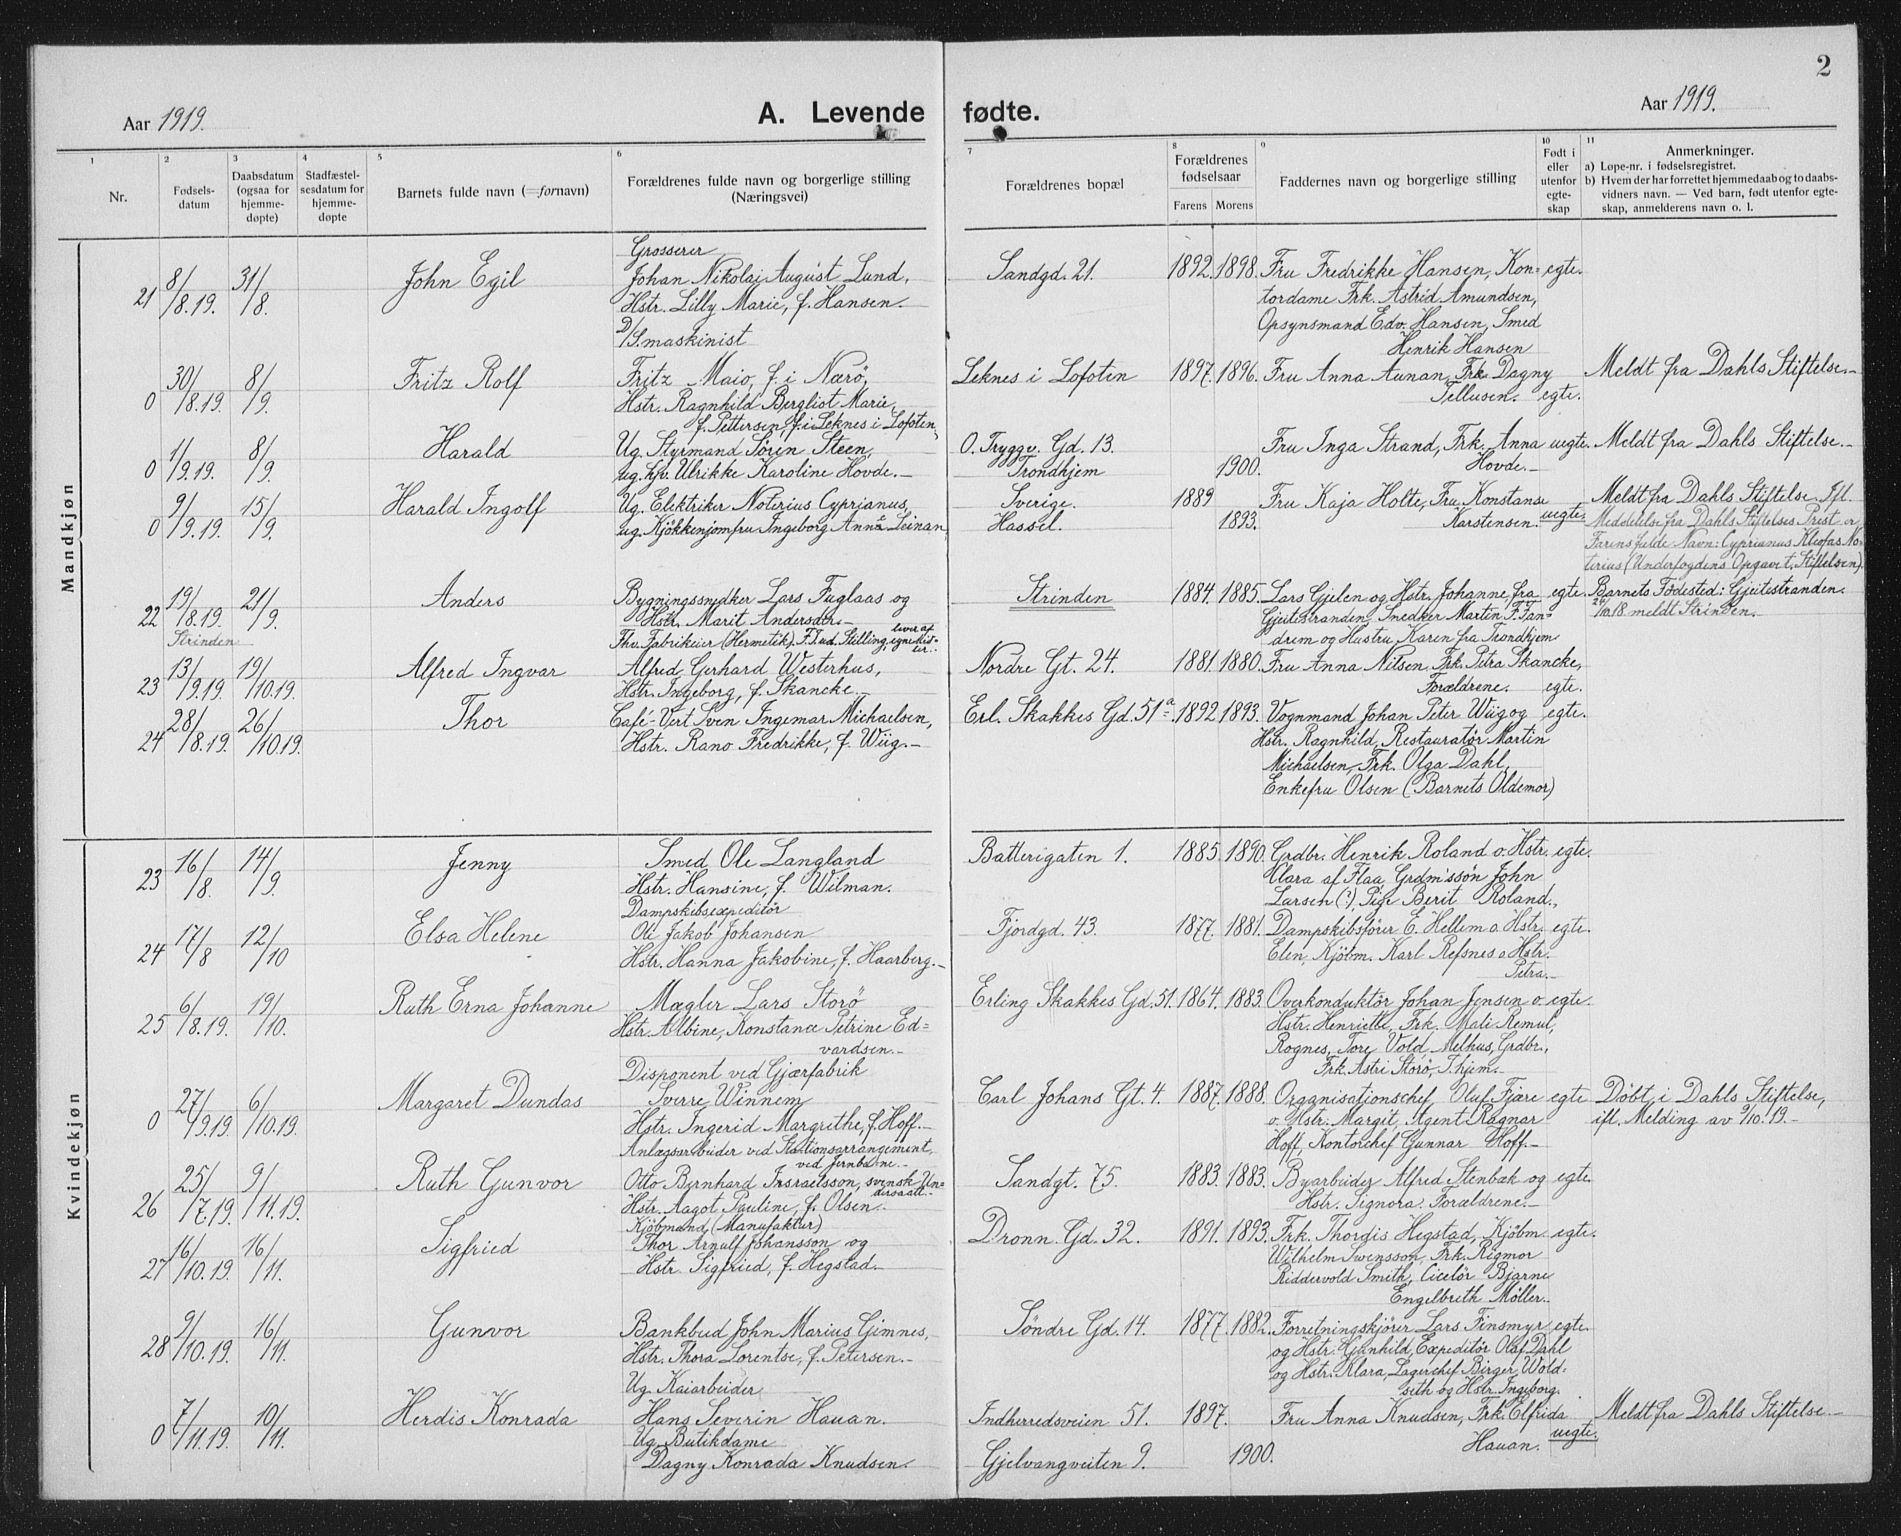 2
Aar 1919.
A. Levende fødte.
Aar 1919.
1
2
3
4
5
6
7
8
9
10
11
Nr.
Fødsels-
datum
Daabsdatum
(ogsaa for
hjemme-
døpte)
Stadfæstel-
sesdatum for
hjemme-
døpte
Barnets fulde navn (=fornavn)
Forældrenes fulde navn og borgerlige stilling
(Næringsvei)
Forældrenes bopæl
Forældrenes
fødselsaar
Farens Morens
Faddernes navn og borgerlige stilling
Født i
eller
utenfor
egte-
skap
Anmerkninger.
a) Løpe-nr. i fødselsregistret.
b) Hvem der har forrettet hjemmedaab og to daabs-
vidners navn. — Ved barn, født utenfor egte-
skap, anmelderens navn o. l.
Mandkjøn
21 8/8.19. 31/8. John Egil
Grosserer
Johan Nikolai August Lund,
Hstr. Lilly Marie, f. Hansen.
Sandgd. 21. 1892. 1898.
Fru Fredrikke Hansen, Kon= egte.
tordame Frk. Astrid Amundsen,
Opsynsmand Edv. Hansen, Smed
Henrik Hansen
0 30/8.19. 8/9. Fritz Rolf
D/S. maskinist
Fritz Maio, f. i Nærö,
Hstr. Ragnhild Bergliot Marie,
f. Pettersen, f. i Leknes i Lofoten,
Leknes i Lofoten 1897. 1896.
Fru Anna Aunan, Frk. Dagny
Tellusen. egte.
Meldt fra Dahls Stiftelse.—
0 1/9.19. 8/9. Harald
Ug. Styrmand Sören Steen,
ug. hfv. Ulrikke Karoline Hovde.—
O. Tryggv. Gd. 13.
Trondhjem 1900.
Fru Inga Strand, Frk. Anna uegte.
Hovde.—
Meldt fra Dahls Stiftelse.—
0 9/9.19. 15/9. Harald Ingolf
Ug. Elektriker Noterius Cyprianus,
ug. Kjökkenjomfru Ingeborg Anna Leinan.
Sverige. 1889
Hassel. 1893.
Fru Kaja Holte, Fru Konstanse
Karstensen. uegte.
Meldt fra Dahls Stiftelse. Ifl.
Meddelelse fra Dahls Stiftelses Prest er
Farens fulde Navn: Cyprianus Kleofas No-
terius (Underfogdens Opgave t. Stiftelsen)
22 19/8.19. 21/9. Anders
Strinden
Bygningssnedker Lars Fuglaas og
Hstr. Marit Andersdtr.—
Strinden 1884. 1885.
Lars Gjelen og Hstr. Johanne fra egte.
Gjeitestranden, Snedker Martin F. Tan-
drem og Hustru Karen fra Trondhjem
Barnets Födested: Gjeitestranden.
meldt Strinden.
23 13/9.19. 19/10.19. Alfred Ingvar
Thv. Fabrikeier (Hermetik). F. Tud. Stilling,
lever af
egne Mid-
ler.
Alfred Gerhard Westerhus,
Hstr. Ingeborg, f. Skancke.—
Nordre Gt. 24. 1881. 1880.
Fru Anna Nilsen, Frk. Petra Skancke,
Forældrene. egte.
24 28/8.19. 26/10.19. Thor
Café-Vert Sven Ingemar Michaelsen,
Hstr. Rano Fredrikke, f. Wüg.—
Erl. Skakkes Gd. 51a. 1892 1893.
Vognmand Johan Peter Wüg og egte.
Hstr. Ragnhild, Restauratör Martin
Michaelsen, Frk. Olga Dahl,
Enkefru Olsen (Barnets Oldemor)
Kvindekjøn
23 16/8. 14/9. Jenny
Smed Ole Langland
Hstr. Hansine, f. Wilman.
Batterigaten 1. 1885. 1890.
Grdbr. Henrik Roland o. Hstr. egte.
Clara af Flaa, Grdm'ssön John
Larsen (?), Pige Berit Roland.,
24 17/8 12/10 Elsa Helene
Dampskibsexpeditör
Ole Jakob Johansen
Hstr. Hanna Jakobine, f. Haarberg.—
Fjordgd. 43. 1877. 1881.
Dampskibsförer E. Hellem o. Hstr. egte.
Elen, Kjöbm. Karl Refsnes o. Hstr.
Petra.—
25 6/8.19. 19/10. Ruth Erna Johanne
Mægler Lars Storö
Hstr. Albine, Konstance Petrine Ed=
vardsen.—
Erling Skakkes Gd. 51. 1864. 1883.
Overkonduktör Johan Jensen o. egte.
Hstr. Henriette, Frk. Mali Remul,
Rognes, Tore Vold, Melhus, Grdbr.,
Frk. Astri Storö, T.hjem.—
0 27/9.19. 6/10.19. Margaret Dundas
Disponent ved Gjærfabrik
Sverre Winnem
Hstr. Ingerid Margrethe, f. Hoff.—
Carl Johans Gt. 4. 1887. 1888.
Organisationschef Oluf Fjære egte
o. Hstr. Margit, Agent Ragnar
Hoff, Kontorchef Gunnar Hoff.—
Döbt i Dahls Stiftelse,
ifl. Melding av 9/10.19.—
26 25/7.19. 9/11.19. Ruth Gunvor
Anlægsarbeider ved Stationsarrangement,
ved Jernbane.—
Otto Bernhard Insraelsson, svensk Un=
dersaatt.—
Hstr. Aagot Pauline, f. Olsen.
Sandgt. 75. 1883. 1883.
Byarbeider Alfred Stenbæk og egte.
Hstr. Signora. Forældrene.—
27 16/10.19. 16/11. Sigfried
Kjöbmand (Manufaktur)
Thor Arnulf Johansson og
Hstr. Sigfried, f. Hegstad.—
Dronn. Gd. 32. 1891. 1893.
Frk. Thordis Hegstad, Kjöbm. egte.
Wilhelm Svensson, Frk. Rigmor
Riddervold Smith, Cicelör Bjarne
Engelbreth Möller.
28 9/10.19. 16/11. Gunvor
Bankbud John Marius Gimnes,
Hstr. Thora Lorentse, f. Petersen.—
Söndre Gd. 14. 1877. 1882.
Forretningskjörer Lars Finsmyr egte.
og Hstr. Gunhild, Expeditör Olaf Dahl
og Hstr. Klara, Lagerchef Birger Wold=
seth og Hstr. Ingeborg.
0 7/11.19. 10/11. Herdis Konrada
Ug. Kaiarbeider
Hans Severin Hauan.
Ug. Butikdame
Dagny Konrada Knudsen.
Indherredsveien 51. 1897.
Gjelvangveiten 9. 1900.
Fru Anna Knudsen, Frk. Elfrida
Hauan. uegte.
Meldt fra Dahls Stiftelse.—